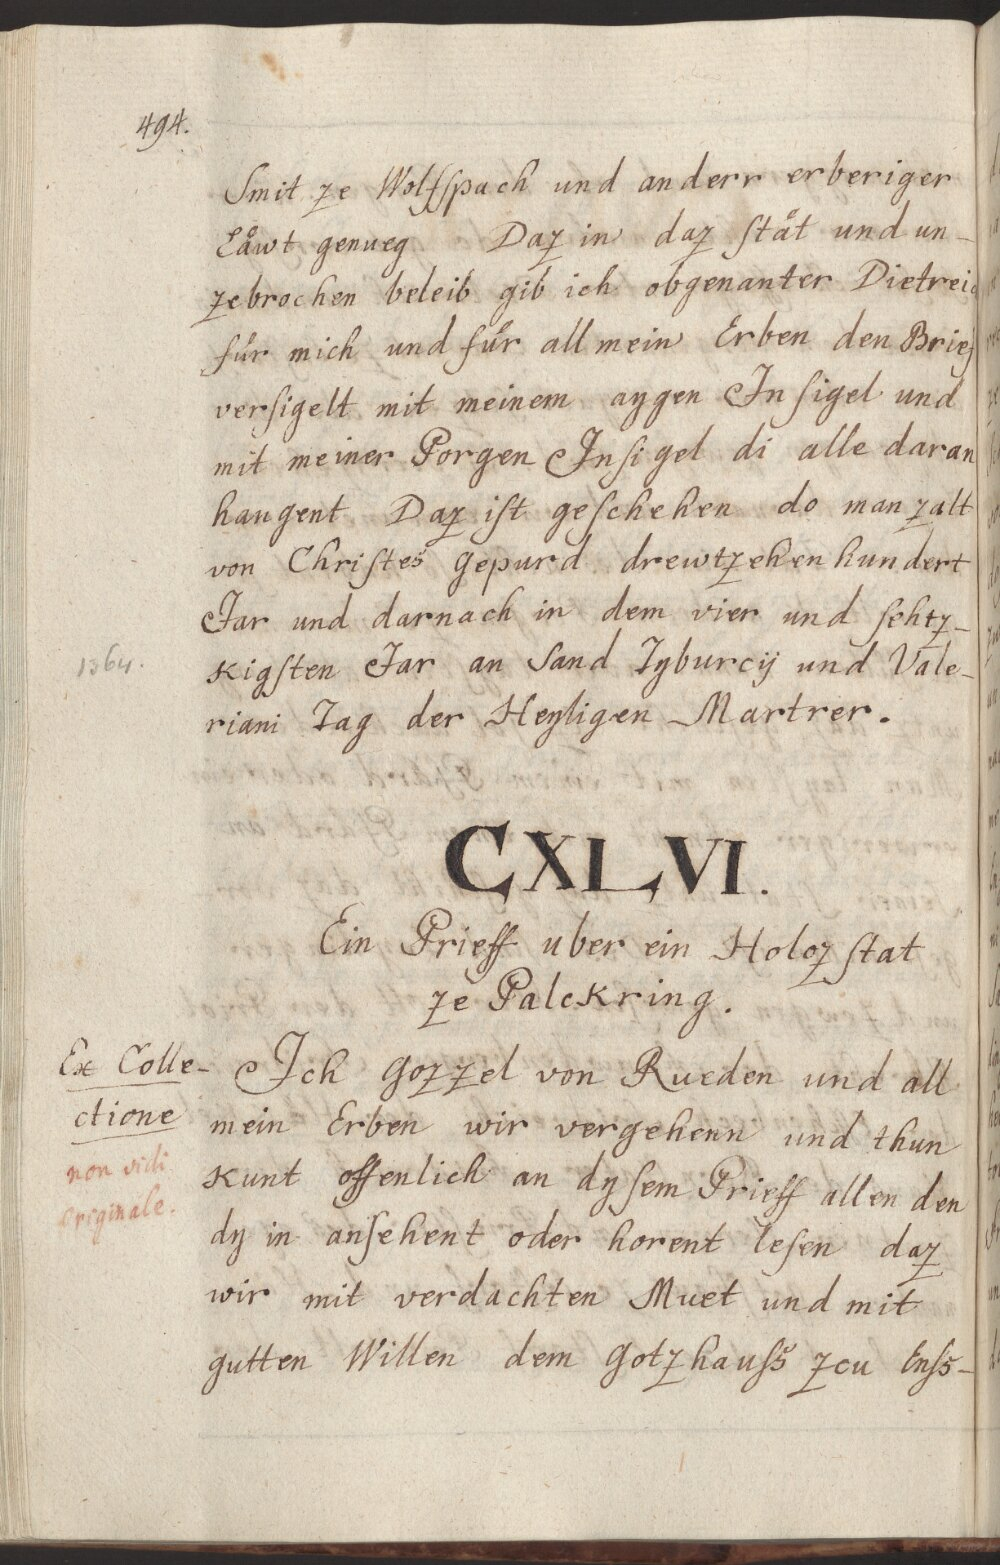 494.
Smit ze Wolfspach und anderr erberiger
Låwt genueg Daz in daz ståt und un-
zebrochen beleib gib ich obgenanter Dietreic
für mich und für all mein Erben den Brief
versigelt mit meinem aygen Insigel und
mit meiner Porgen Insigel di alle daran
hangent Daz ist geschehen do man zalt
von Christes Gepurd drewtzehenhundert
Jar und darnach in dem vier und sehtz-
1364.
kigsten Jar an Sand Tyburcij und Vale-
riani Tag der Heyligen Martrer.
CXLVI.
Ein Prieff uber ein Holoz stat
ze Palckring.
Ex Colle-
ctione
non vidi
originale.
Ich Gozzel von Rueden und all
mein Erben wir vergehenn und thun
kunt offenlich an dysem Prieff allen den
dy in ansehent oder horent lesen daz
wir mit verdachten Muet und mit
gutten Willen dem Gotzhauss zcu Enss-